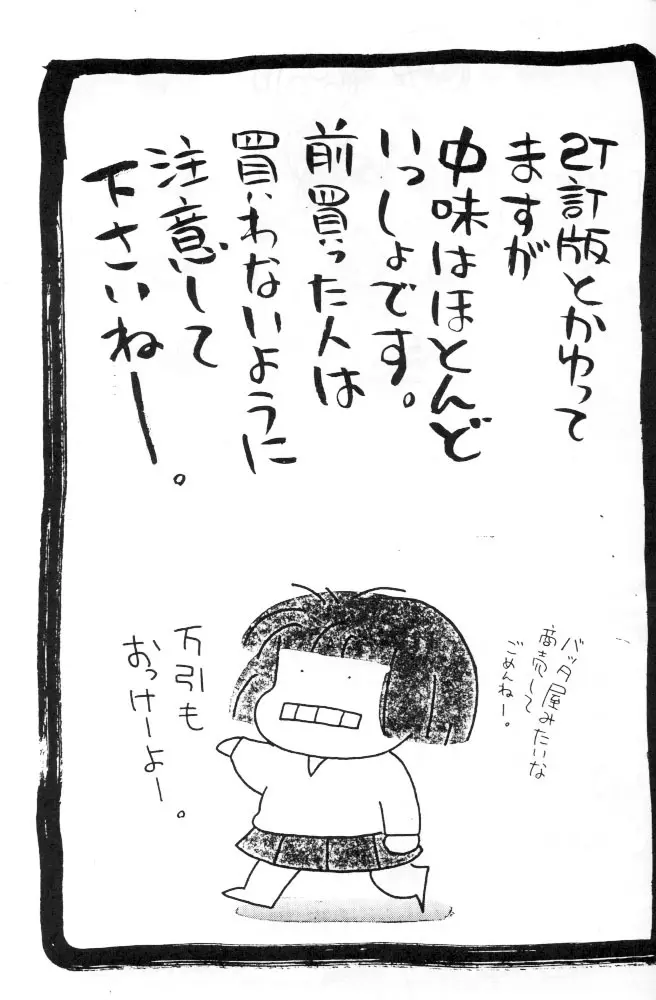 訂版とかゆって
ますが
中味はほとんど
いっしょです。
前買った人は
買わないように
注意して
下さいねー。
バッタ屋みたいな
商売して
ごめんねー。
万引も
おっけーよー。